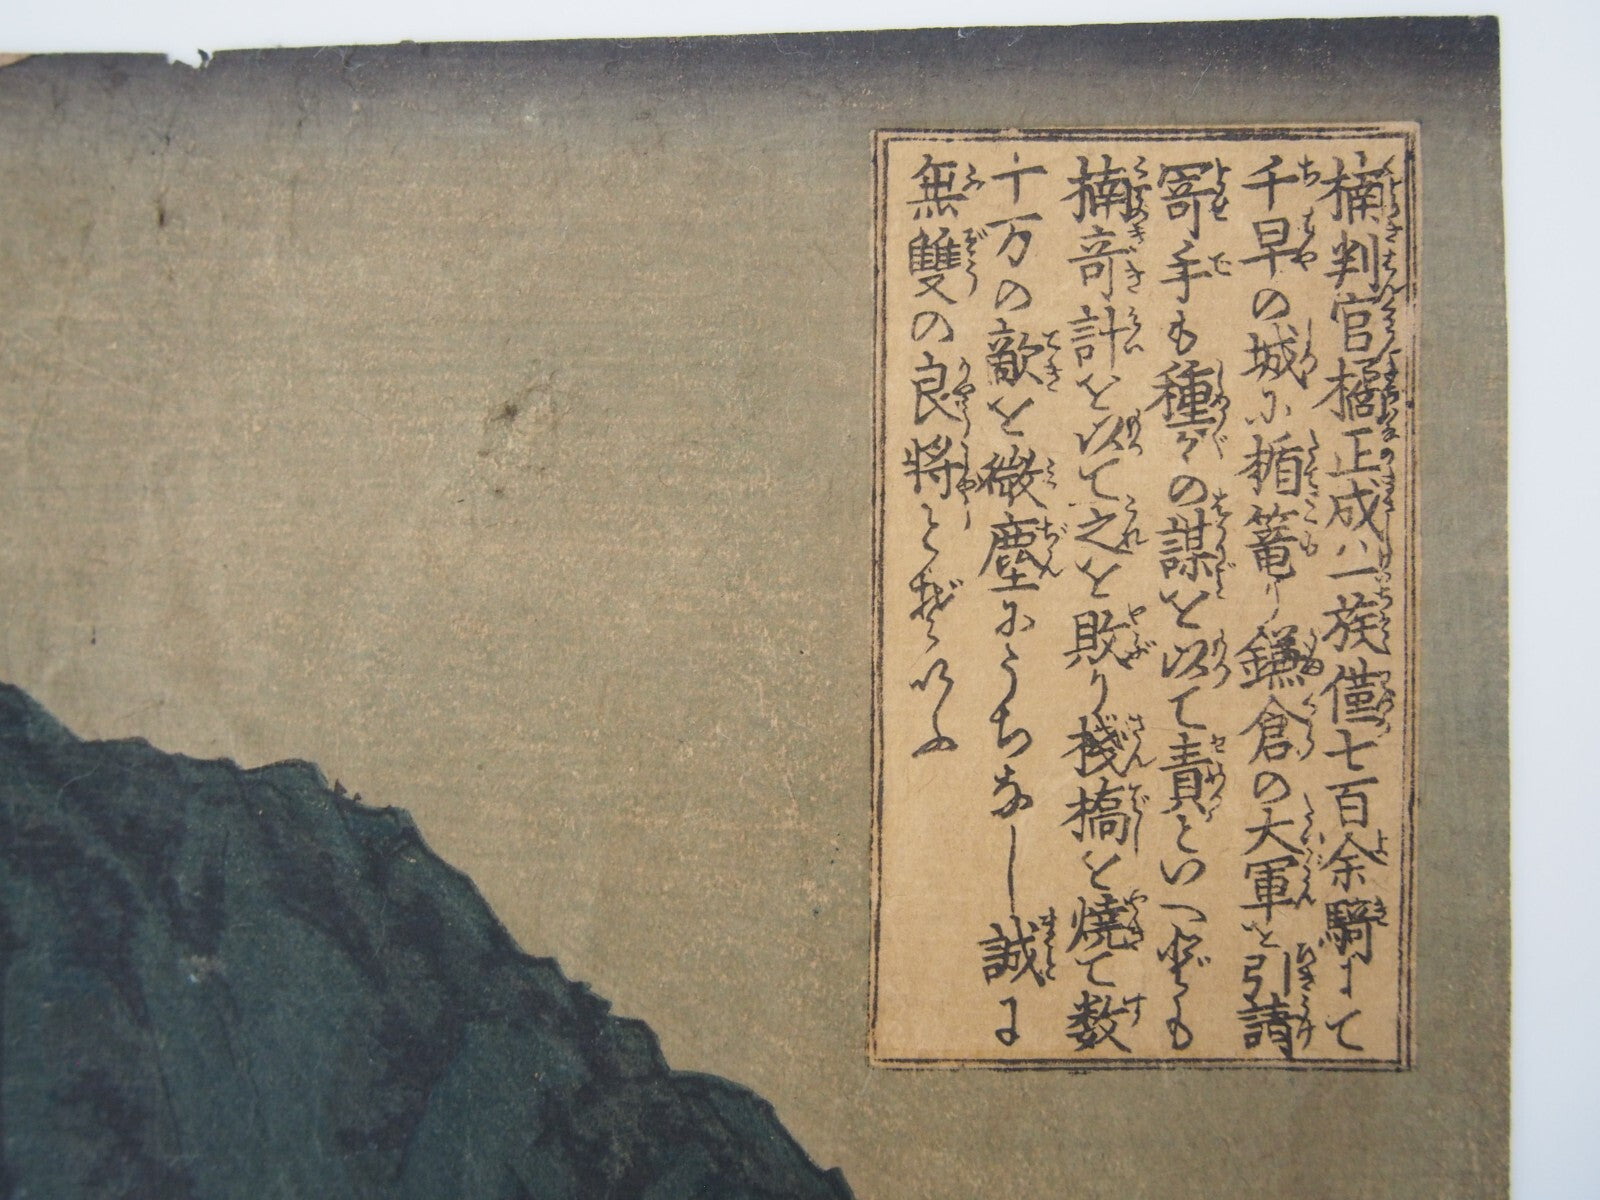 楠判官橘正成ハ一族僅七百余騎にて
千早の城に楯篭り鎌倉の大軍を引請
寄手も種〻の謀を以て責といへども
楠奇計を以て之を敗り桟橋を焼て数
十万の敵を微塵にうちなし誠に
無雙の良将とぞいふ